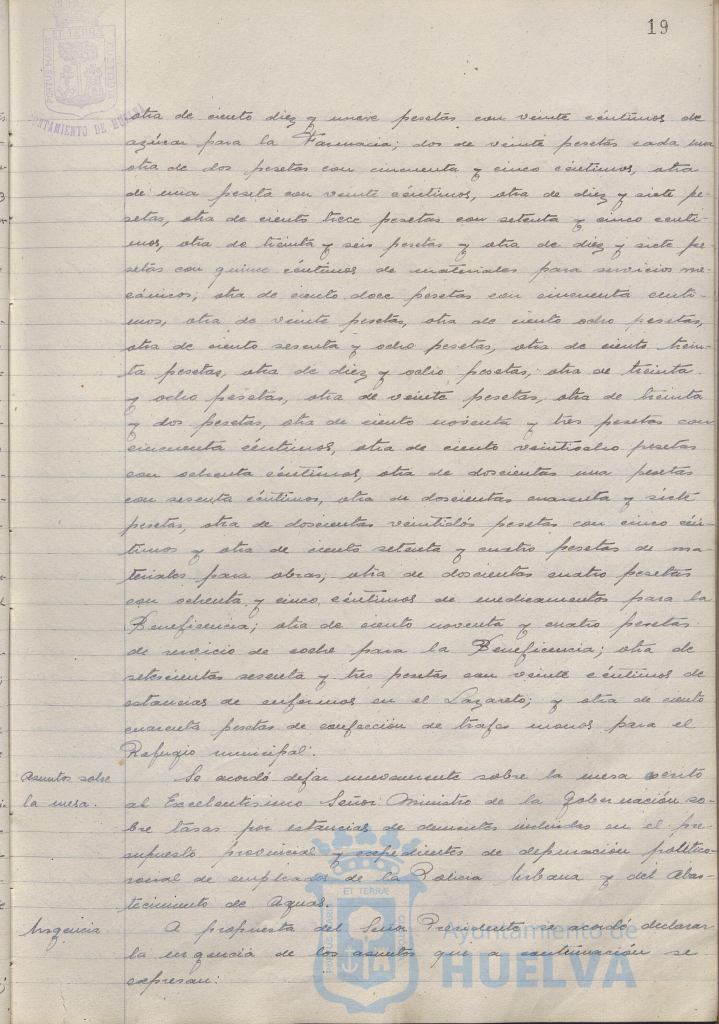 19
PORTUS MARIS ET TERRAE CUSTODIA
AYUNTAMIENTO DE HUELVA
otra de ciento diez y nueve pesetas con veinte céntimos de
azúcar para la Farmacia; dos de veinte pesetas cada una
otra de dos pesetas con cincuenta y cinco céntimos, otra
de una peseta con veinte céntimos, otra de diez y siete pe-
setas, otra de ciento trece pesetas con setenta y cinco cénti-
mos, otra de treinta y seis pesetas y otra de diez y siete pe-
setas con quince céntimos de materiales para servicios me-
cánicos; otra de ciento doce pesetas con cincuenta cénti-
mos, otra de veinte pesetas, otra de ciento ocho pesetas,
otra de ciento sesenta y ocho pesetas, otra de ciento trein-
ta pesetas, otra de diez y ocho pesetas, otra de treinta
y ocho pesetas, otra de veinte pesetas, otra de treinta
y dos pesetas, otra de ciento noventa y tres pesetas con
cincuenta céntimos, otra de ciento veintiocho pesetas
con ochenta céntimos, otra de doscientas una pesetas
con sesenta céntimos, otra de doscientas cuarenta y siete
pesetas, otra de doscientas veintidós pesetas con cinco cén-
timos y otra de ciento setenta y cuatro pesetas de ma-
teriales para obras; otra de doscientas cuatro pesetas
con ochenta y cinco céntimos de medicamentos para la
Beneficencia; otra de ciento noventa y cuatro pesetas
de servicio de coche para la Beneficencia; otra de
setecientas sesenta y tres pesetas con veinte céntimos de
estancias de enfermos en el Lazareto; y otra de ciento
cuarenta pesetas de confección de trajes monos para el
Refugio municipal.
Asuntos sobre
la mesa.
Se acordó dejar nuevamente sobre la mesa escrito
al Excelentísimo Señor Ministro de la Gobernación so-
bre tasas por estancias de dementes incluidas en el pre-
supuesto provincial y expedientes de depuración político-
social de empleados de la Policía Urbana y del Abas-
tecimiento de Aguas.
Urgencia
A propuesta del Señor Presidente se acordó declarar
la urgencia de los asuntos que a continuación se
expresan:
ET TERRAE
Ayuntamiento de
HUELVA